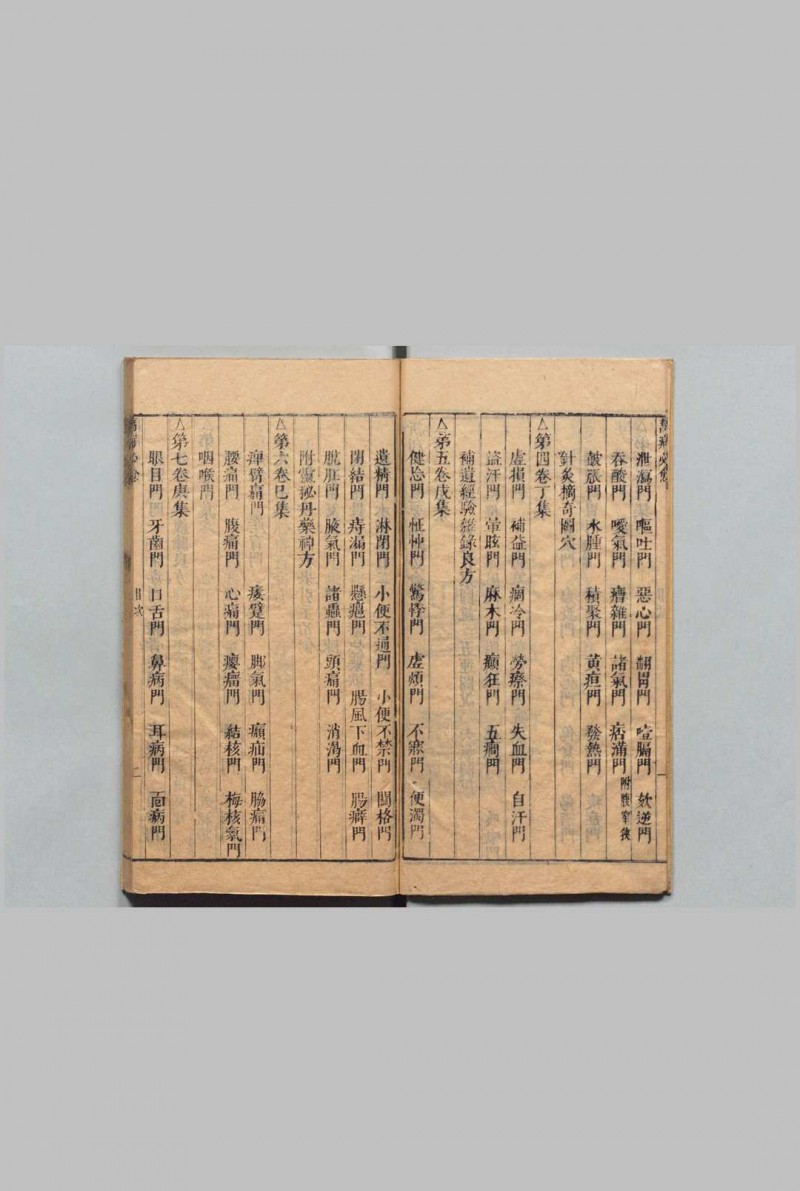 泄瀉門 嘔吐門 惡心門 翻胃門 噎膈門 欬逆門
吞酸門 噯氣門 嘈雜門 諸氣門 痞滿門
皷脹門 水腫門 積聚門 黃疸門 發熱門
針灸摘奇圖穴
△第四卷丁集
虛損門 補益門 痼冷門 勞瘵門 失血門 自汗門
盜汗門 暈眩門 麻木門 癲狂門 五癇門
補遺經驗雜錄良方
△第五卷戊集
健忘門 怔忡門 驚悸門 虛煩門 不寐門 便濁門
遺精門 淋閉門 小便不通門 小便不禁門 關格門
閉結門 痔漏門 懸癰門 腸風下血門 腸癖門
脫肛門 腋氣門 諸蟲門 頭痛門 消渴門
附靈秘丹藥神方
△第六卷巳集
痺臂痛門 痿躄門 脚氣門 㿗疝門 脇痛門
腰痛門 腹痛門 心痛門 癭瘤門 結核門 梅核氣門
咽喉門
△第七卷庚集
眼目門 牙齒門 口舌門 鼻病門 耳病門 面病門
目次
二